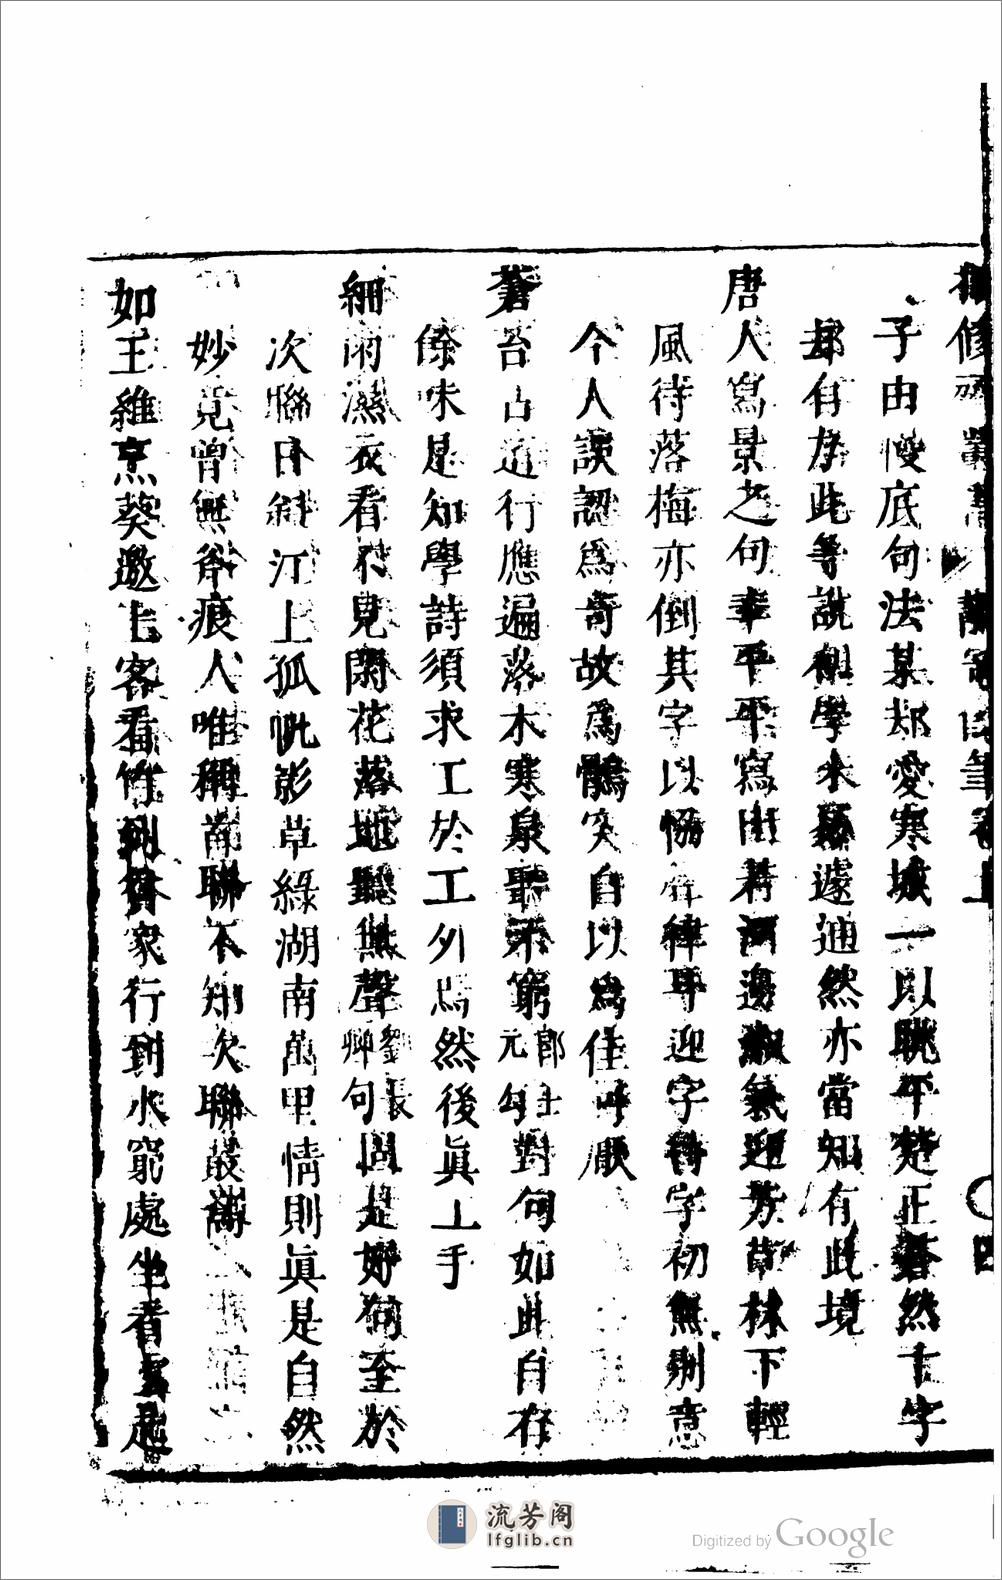 子由慢底句法某却愛寒城一以眺平楚正蒼然十字
却有力此等說似學未易遽通然亦當知有此境
唐人寫景之句率平平寫出若河邊淑氣迎芳草林下輕
風待落梅亦倒其字以恊聲律耳迎字待字初無別意
今人誤認爲奇故爲鶻突自以爲佳可厭
蒼苔古道行應遍落木寒泉聽不窮郎士元句對句如此自有
餘味是知學詩須求工於工外爲然後眞上手
細雨濕衣看不見閑花落地聽無聲劉長卿句固是好句至於
次聯日斜江上孤帆影草綠湖南萬里情則眞是自然
妙竟曾無斧痕人唯稱前聯不知次聯最
如王維烹葵邀上客看竹到貧家行到水窮處坐看雲起
流芳阁
lfglib.cn
Digitized by Google